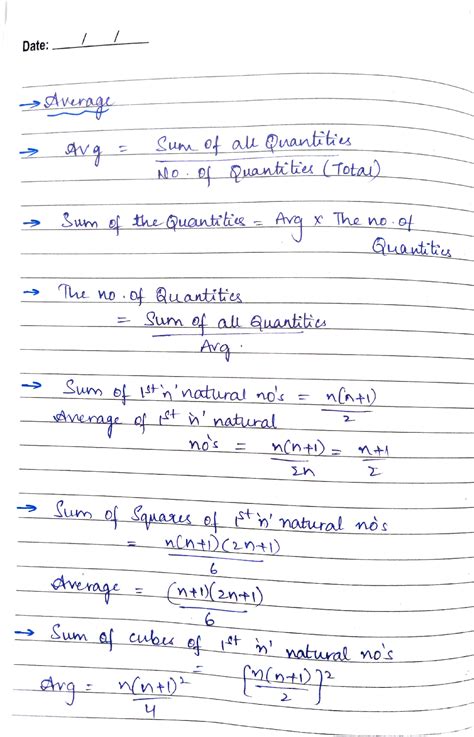 Date: / /
→ Average
→ Avg = Sum of all Quantities / No. of Quantities (Total)
→ Sum of the Quantities = Avg x The no. of
Quantities
→ The no. of Quantities
= Sum of all Quantities / Avg.
→ Sum of 1st 'n' natural no's = n(n+1) / 2
Average of 1st 'n' natural
no's = n(n+1) / 2n = n+1 / 2
→ Sum of Squares of 1st 'n' natural no's
= n(n+1)(2n+1) / 6
Average = (n+1)(2n+1) / 6
→ Sum of cubes of 1st 'n' natural no's
= [n(n+1) / 2]²
Avg = n(n+1)² / 4